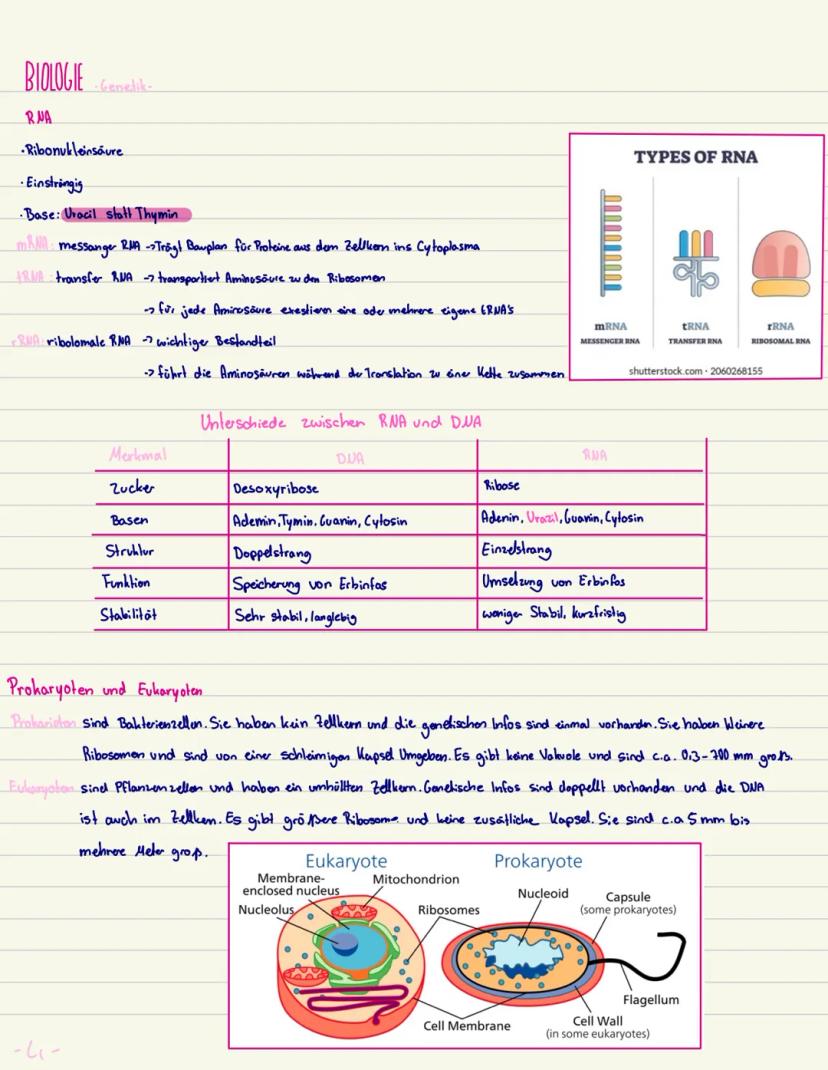 BIOLOGIE - Genetik -
RNA
· Ribonukleinsäure
· Einsträngig
· Base: Uracil statt Thymin
mRNA: messanger RNA -> Trägt Bauplan für Proteine aus dem Zellkern ins Cytoplasma
tRNA: transfer RNA -> transportiert Aminosäure zu den Ribosomen
-> für jede Aminosäure exestieren eine oder mehrere eigene tRNA's
rRNA: ribolomale RNA -> wichtiger Bestandteil
-> führt die Aminosäuren während der Translation zu einer Kette zusammen
TYPES OF RNA
mRNA tRNA rRNA
MESSENGER RNA TRANSFER RNA RIBOSOMAL RNA
shutterstock.com · 2060268155
Unterschiede zwischen RNA und DNA
Merkmal DNA RNA
Zucker Desoxyribose Ribose
Basen Ademin, Tymin, Guanin, Cytosin Adenin, Urazil, Guanin, Cytosin
Struktur Doppelstrang Einzelstrang
Funktion Speicherung von Erbinfos Umsetzung von Erbinfos
Stabilität Sehr stabil, langlebig weniger Stabil, kurzfristig
Prokaryoten und Eukaryoten
Prokarioten sind Bakterienzellen. Sie haben kein Zellkern und die genetischen Infos sind einmal vorhanden. Sie haben kleinere
Ribosomen und sind von einer schleimigen Kapsel Umgeben. Es gibt keine Vakuole und sind c.a. 0,3-700 mm groß.
Eukaryoten sind Pflanzenzellen und haben ein umhüllten Zellkern. Genetische Infos sind doppellt vorhanden und die DNA
ist auch im Zellkern. Es gibt größere Ribosome und keine zusätliche Kapsel. Sie sind c.a 5 mm bis
mehrere Meter groß.
Eukaryote Prokaryote
Membrane-
enclosed nucleus
Mitochondrion
Nucleolus
Ribosomes
Nucleoid
Capsule
(some prokaryotes)
Flagellum
Cell Membrane
Cell Wall
(in some eukaryotes)